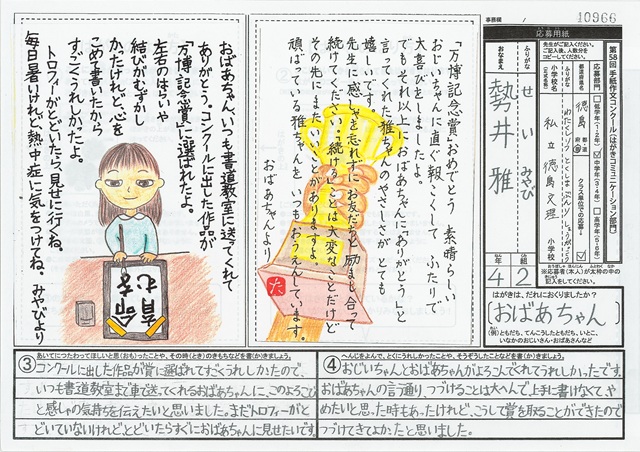 事務欄 /
10966
応募用紙
先生がご記入ください。
ご記入後、人数分を
コピーしてください。
第58回 手紙作文コンクール〈はがきコミュニケーション部門〉
応募部門
低学年(1・2年)
中学年(3・4年)
高学年(5・6年)
クラス単位での応募
都道府県名
徳島
小学校名
(正式名称)
ふりがな
私立 徳島文理 小学校
ふりがな せい みやび
おなまえ 勢井 雅
年 組
4 2
※応募者(本人)が太枠の中の
記入をしてください。
はがきは、だれにおくりましたか?
(おばあちゃん)
(例)ともだち、てんこうしたともだち、いとこ、
いなかのおじいさん・おばあさんなど
「万博記念賞」おめでとう 素晴らしい
おじいちゃんに直ぐ報くして ふたりで
大喜びをしましたよ。
でもそれ以上におばあちゃんに「ありがとう」と
言ってくれた雅ちゃんのやさしさが とても
嬉しいです。
先生に感しゃを忘れずに お友だちと励まし合って
続けてください。「続ける」ことは大変なことだけど
その先にまたいいことがありますよ。
頑ばってる雅ちゃんを いつもおうえんしています。
おばあちゃんより
た
おばあちゃん、いつも書道教室に送ってくれて
ありがとう。コンクールに出した作品が
「万博記念賞」に選ばれたよ。
左右のはらいや
結びがむずかし
かったけれど、心を
こめて書いたから
すごくうれしかったよ。
トロフィーがとどいたら見せに行くね。
毎日暑いけれど、熱中症に気をつけてね。 みやびより
命を
育む
③ あいてにつたわってほしいと思(おも)ったことや、その時(とき)のきもちなどを書(か)きましょう。
コンクールに出した作品が賞に選ばれてすごくうれしかったので、
いつも書道教室まで車で送ってくれるおばあちゃんに、このよろこび
と感しゃの気持ちを伝えたいと思いました。まだトロフィーがと
どいていないけれど、とどいたらすぐにおばあちゃんに見せたいです。
④ へんじをよんで、とくにうれしかったことや、そうぞうしたことなどを書(か)きましょう。
おじいちゃんとおばあちゃんがよろこんでくれてうれしかったです。
おばあちゃんの言う通り、つづけることは大へんで、上手に書けなくて、や
めたいと思った時もあったけれど、こうして賞を取ることができたので
つづけてきてよかったと思いました。